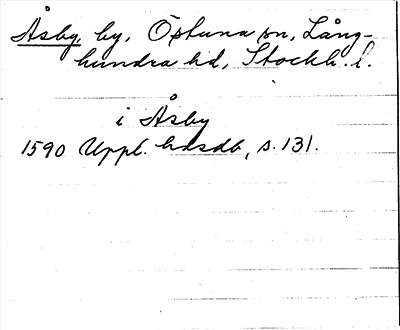 Åsby, by, Östuna sn, Lång-
hundra hd, Stockh. l.
i Åsby
1590 Uppl. hdsdb, s. 131.